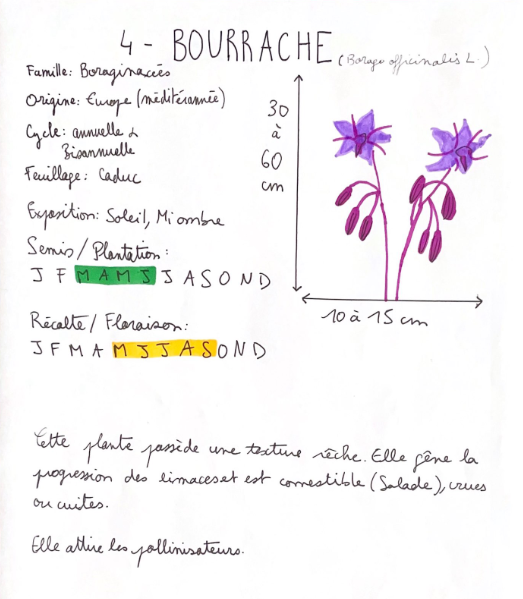 4 - BOURRACHE (Borago officinalis L.)
Famille: Boraginacées
Origine: Europe (méditérannée)
Cycle: annuelle &
Bisannuelle
Feuillage: Caduc
30
à
60
cm
Exposition: Soleil, Mi ombre
Semis / Plantation:
J F M A M J J A S O N D
10 à 15 cm
Récolte / Floraison:
J F M A M J J A S O N D
Cette plante possède une texture rêche. Elle gêne la
progression des limaces et est comestible (Salade), crues
ou cuites.
Elle attire les pollinisateurs.